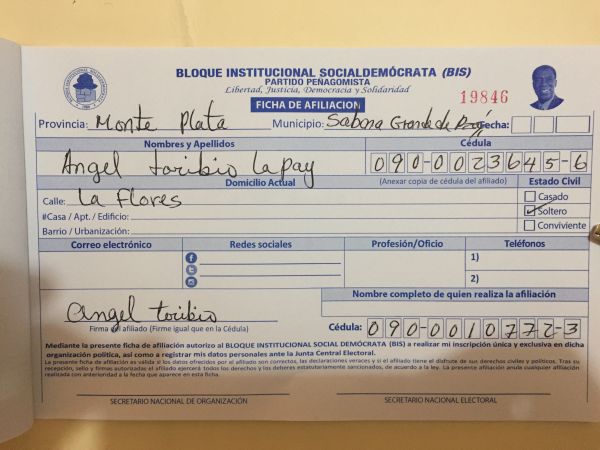 BLOQUE INSTITUCIONAL SOCIALDEMÓCRATA (BIS)
PARTIDO PEÑAGOMISTA
Libertad, Justicia, Democracia y Solidaridad
FICHA DE AFILIACION
19846
Provincia: Monte Plata Municipio: Sabana Grande de Fecha:
Nombres y Apellidos Cédula
Angel toribio Lapay 090-0023645-6
Domicilio Actual (Anexar copia de cédula del afiliado) Estado Civil
Calle: La Flores Casado
#Casa / Apt. / Edificio: Soltero
Barrio / Urbanización: Conviviente
Correo electrónico Redes sociales Profesión/Oficio Teléfonos
1)
2)
Nombre completo de quien realiza la afiliación
angel toribio
Firma del afiliado (Firme igual que en la Cédula) Cédula: 090-0010772-3
Mediante la presente ficha de afiliación autorizo al BLOQUE INSTITUCIONAL SOCIAL DEMÓCRATA (BIS) a realizar mi inscripción única y exclusiva en dicha
organización política, así como a registrar mis datos personales ante la Junta Central Electoral.
La presente ficha de afiliación es válida si los datos ofrecidos por el afiliado son correctos, las declaraciones veraces y si el afiliado tiene el disfrute de sus derechos civiles y políticos. Tras su
recepción, sello y firmas autorizadas el afiliado ejercerá todos los derechos y los deberes estatutariamente sancionados, de acuerdo a la ley. La presente afiliación anula cualquier afiliación
realizada con anterioridad a la fecha que aparece en esta ficha.
SECRETARIO NACIONAL DE ORGANIZACIÓN SECRETARIO NACIONAL ELECTORAL